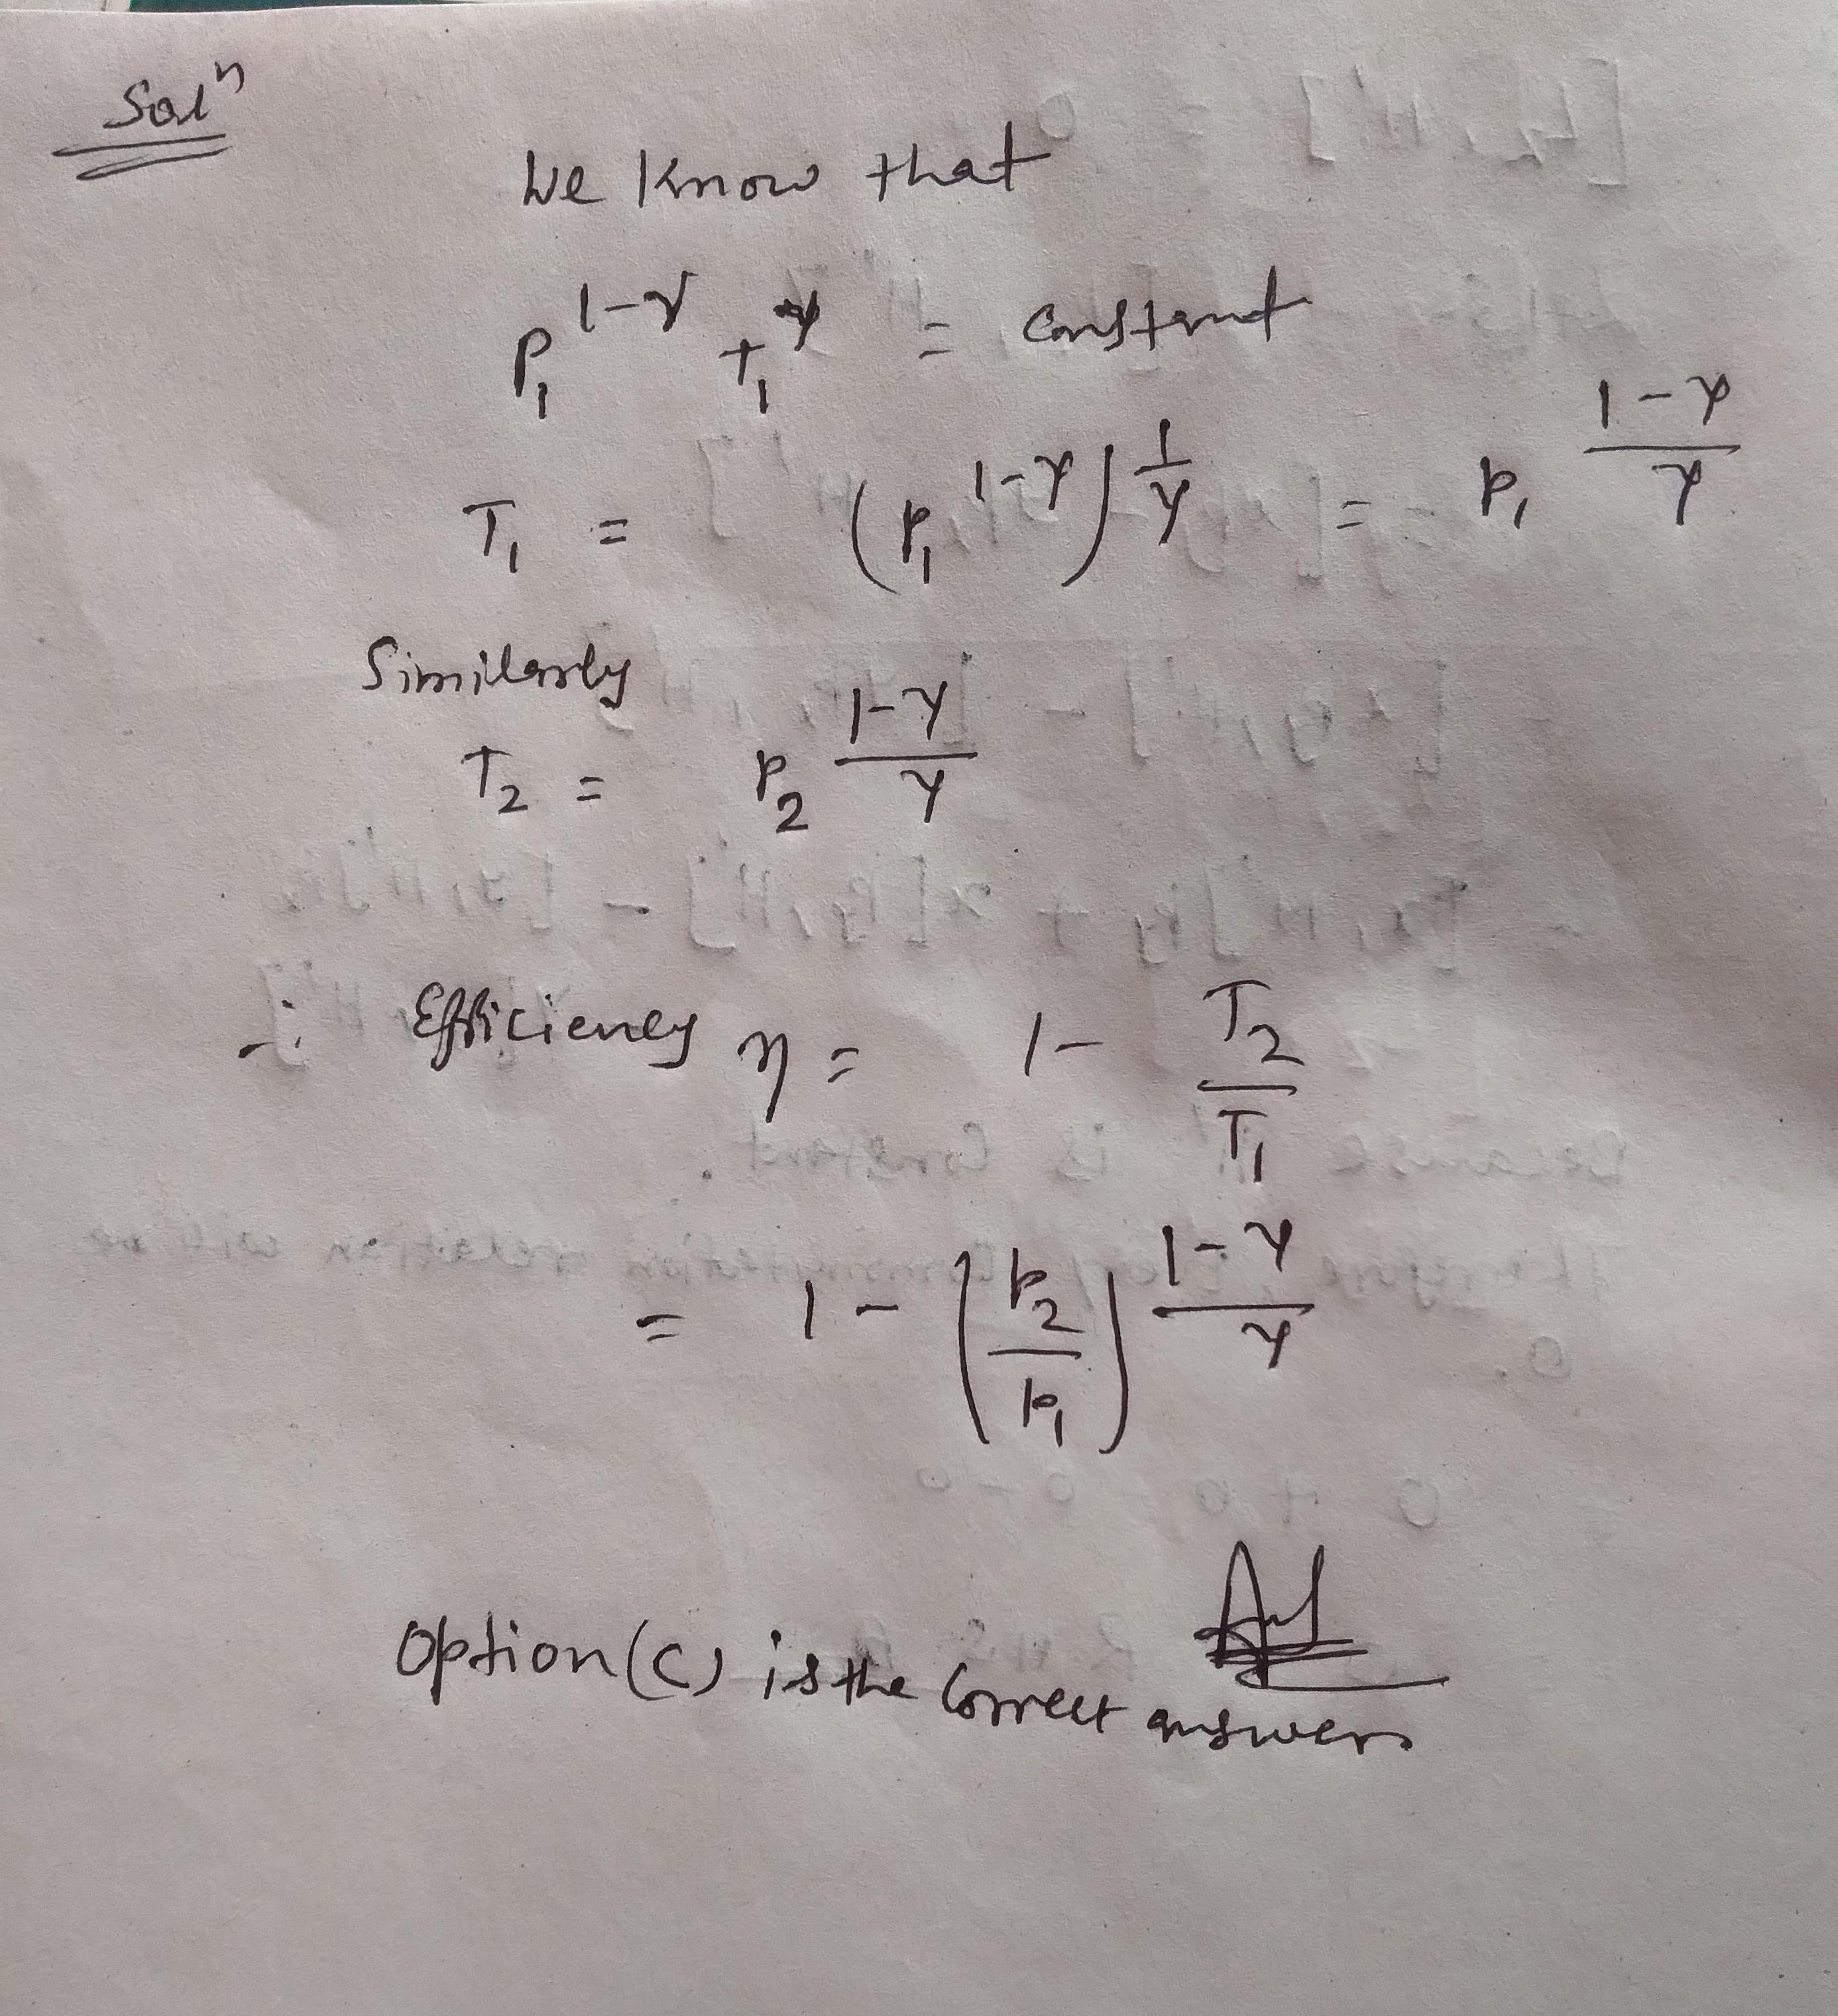 Solⁿ
We Know that
P₁^{1-γ} T₁^{γ} = Constant
T₁ = (P₁^{1-γ})^{1/γ} = P₁^{(1-γ)/γ}
Similarly
T₂ = P₂^{(1-γ)/γ}
∴ Efficiency η = 1 - T₂/T₁
= 1 - (P₂/P₁)^{(1-γ)/γ}
Option (C) is the Correct answer